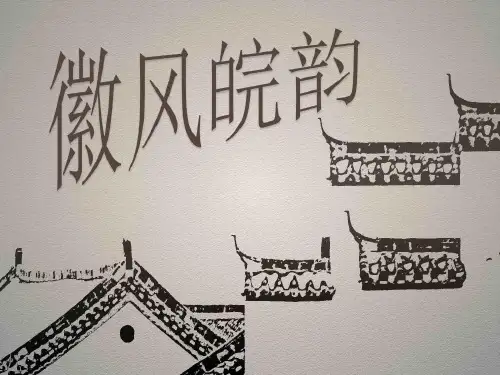 徽风皖韵